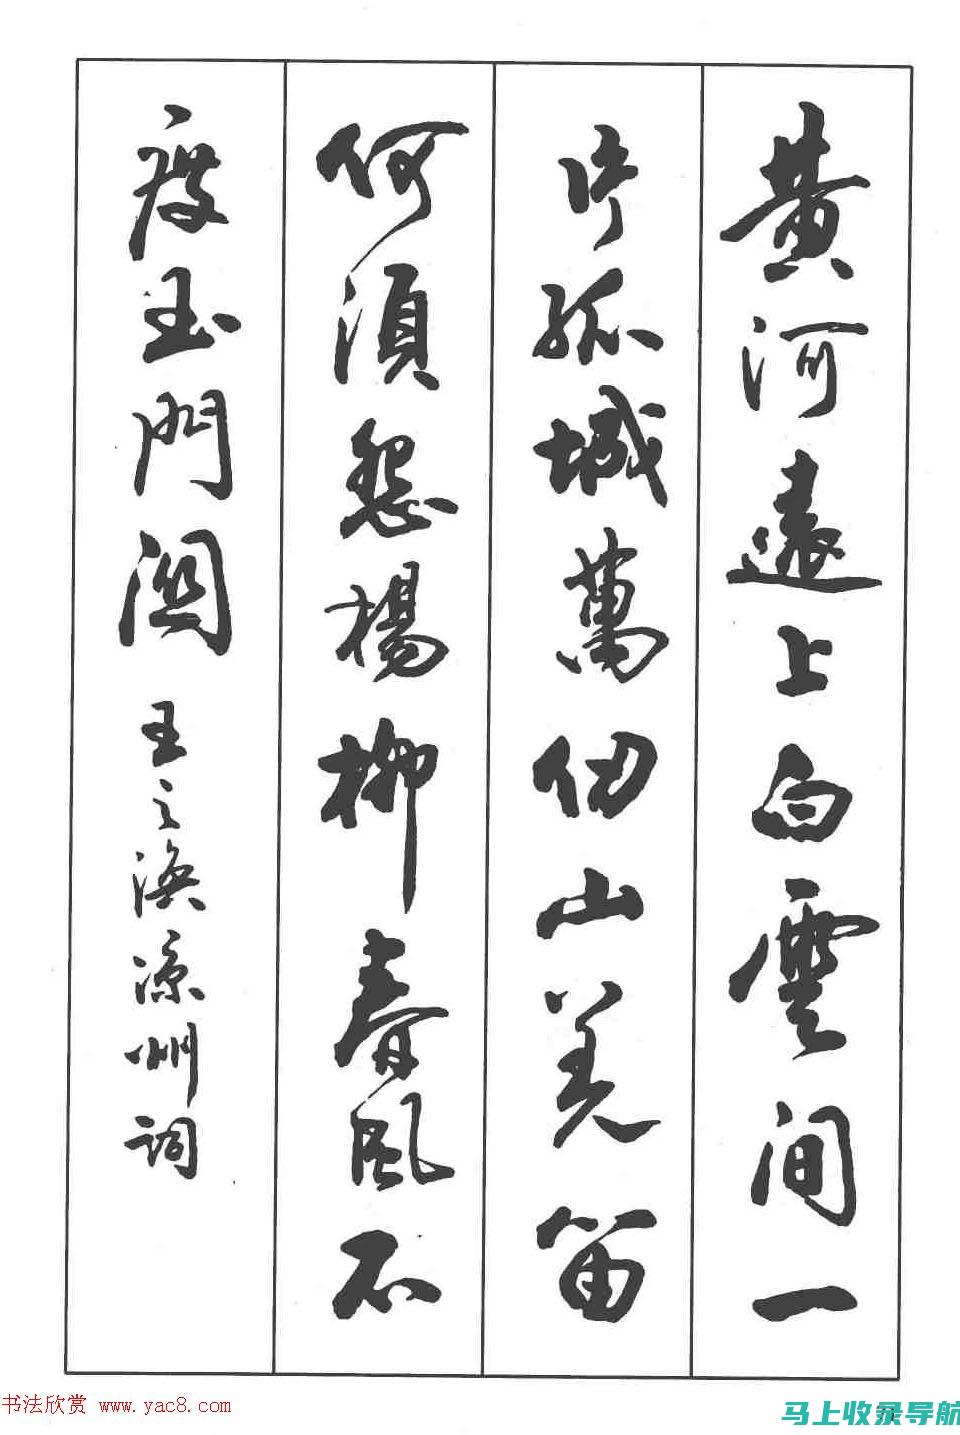 黄河遠上白雲间一
片孤城萬仞山羌笛
何須怨楊柳春風不
度玉門関王之渙凉州詞
书法欣赏 www.yac8.com
马上收录导航